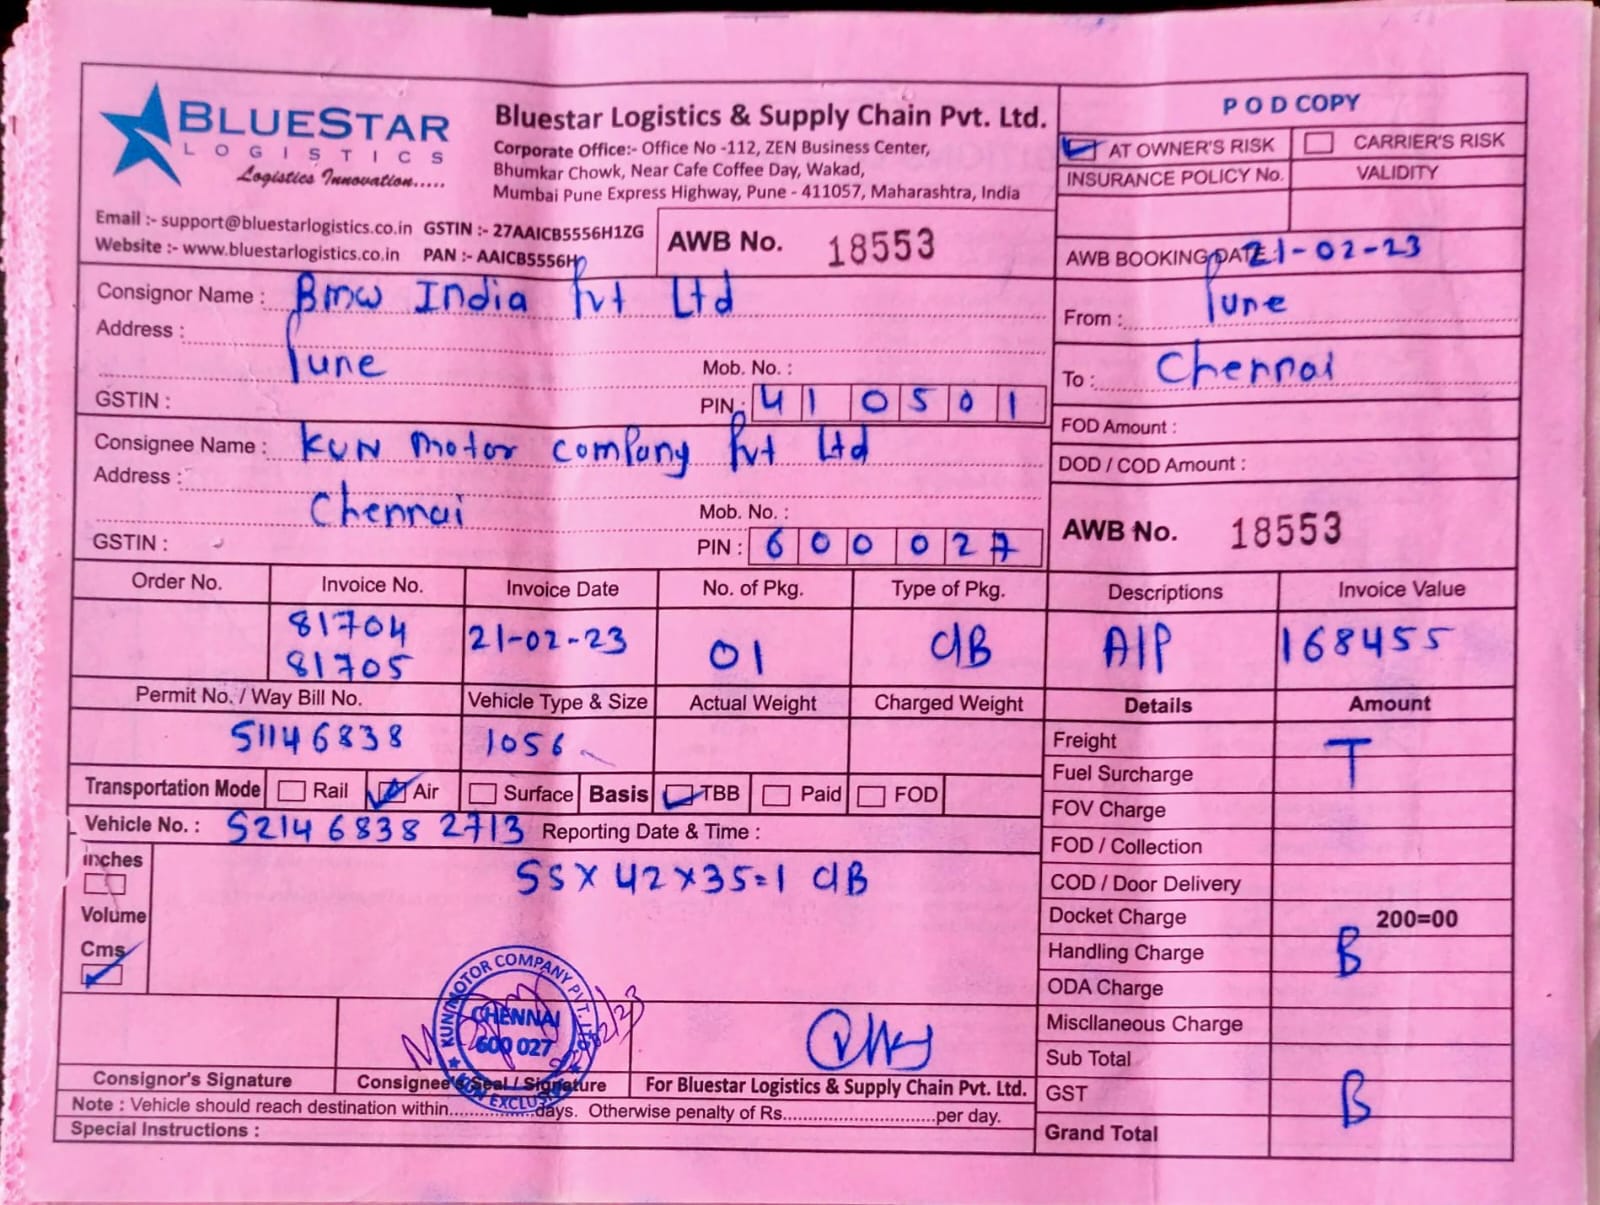 BLUESTAR
LOGISTICS
Logistics Innovation.....
Bluestar Logistics & Supply Chain Pvt. Ltd.
Corporate Office:- Office No -112, ZEN Business Center,
Bhumkar Chowk, Near Cafe Coffee Day, Wakad,
Mumbai Pune Express Highway, Pune - 411057, Maharashtra, India
Email :- support@bluestarlogistics.co.in GSTIN :- 27AAICB5556H1ZG
Website :- www.bluestarlogistics.co.in PAN :- AAICB5556H
AWB No. 18553
POD COPY
AT OWNER'S RISK CARRIER'S RISK
INSURANCE POLICY No. VALIDITY
AWB BOOKING DATE : 21-02-23
From : Pune
To : Chennai
FOD Amount :
DOD / COD Amount :
AWB No. 18553
Consignor Name : Bmw India Pvt Ltd
Address :
Pune Mob. No. :
GSTIN : PIN : 410501
Consignee Name : KUN Motor Company Pvt Ltd
Address :
Chennai Mob. No. :
GSTIN : PIN : 600027
Order No. Invoice No. Invoice Date No. of Pkg. Type of Pkg. Descriptions Invoice Value
81704
81705 21-02-23 01 CIB AIP 168455
Permit No. / Way Bill No. Vehicle Type & Size Actual Weight Charged Weight Details Amount
51146838 1056
Transportation Mode Rail Air Surface Basis TBB Paid FOD
Vehicle No. : 52146838 2713 Reporting Date & Time :
inches
Volume
Cms
55 X 42 X 35 = 1 CIB
Freight T
Fuel Surcharge
FOV Charge
FOD / Collection
COD / Door Delivery
Docket Charge 200=00
Handling Charge B
ODA Charge
Miscllaneous Charge
Sub Total
GST B
Grand Total
KUN MOTOR COMPANY PVT. LTD.
CHENNAI
600 027
KUN EXCLUSIVE
Consignor's Signature Consignee's Seal / Signature For Bluestar Logistics & Supply Chain Pvt. Ltd.
Note : Vehicle should reach destination within..................days. Otherwise penalty of Rs...........................per day.
Special Instructions :